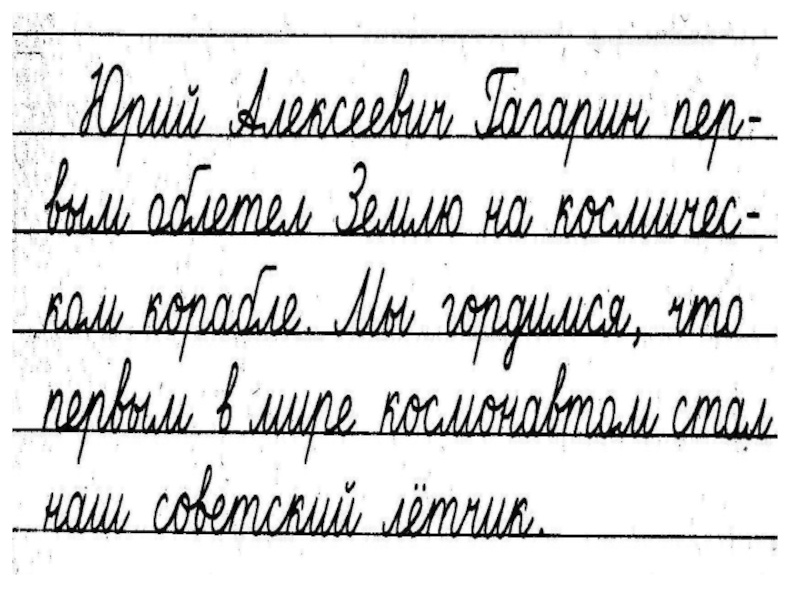 Юрий Алексеевич Гагарин пер-
вым облетел Землю на космичес-
ком корабле. Мы гордимся, что
первым в мире космонавтом стал
наш советский лётчик.